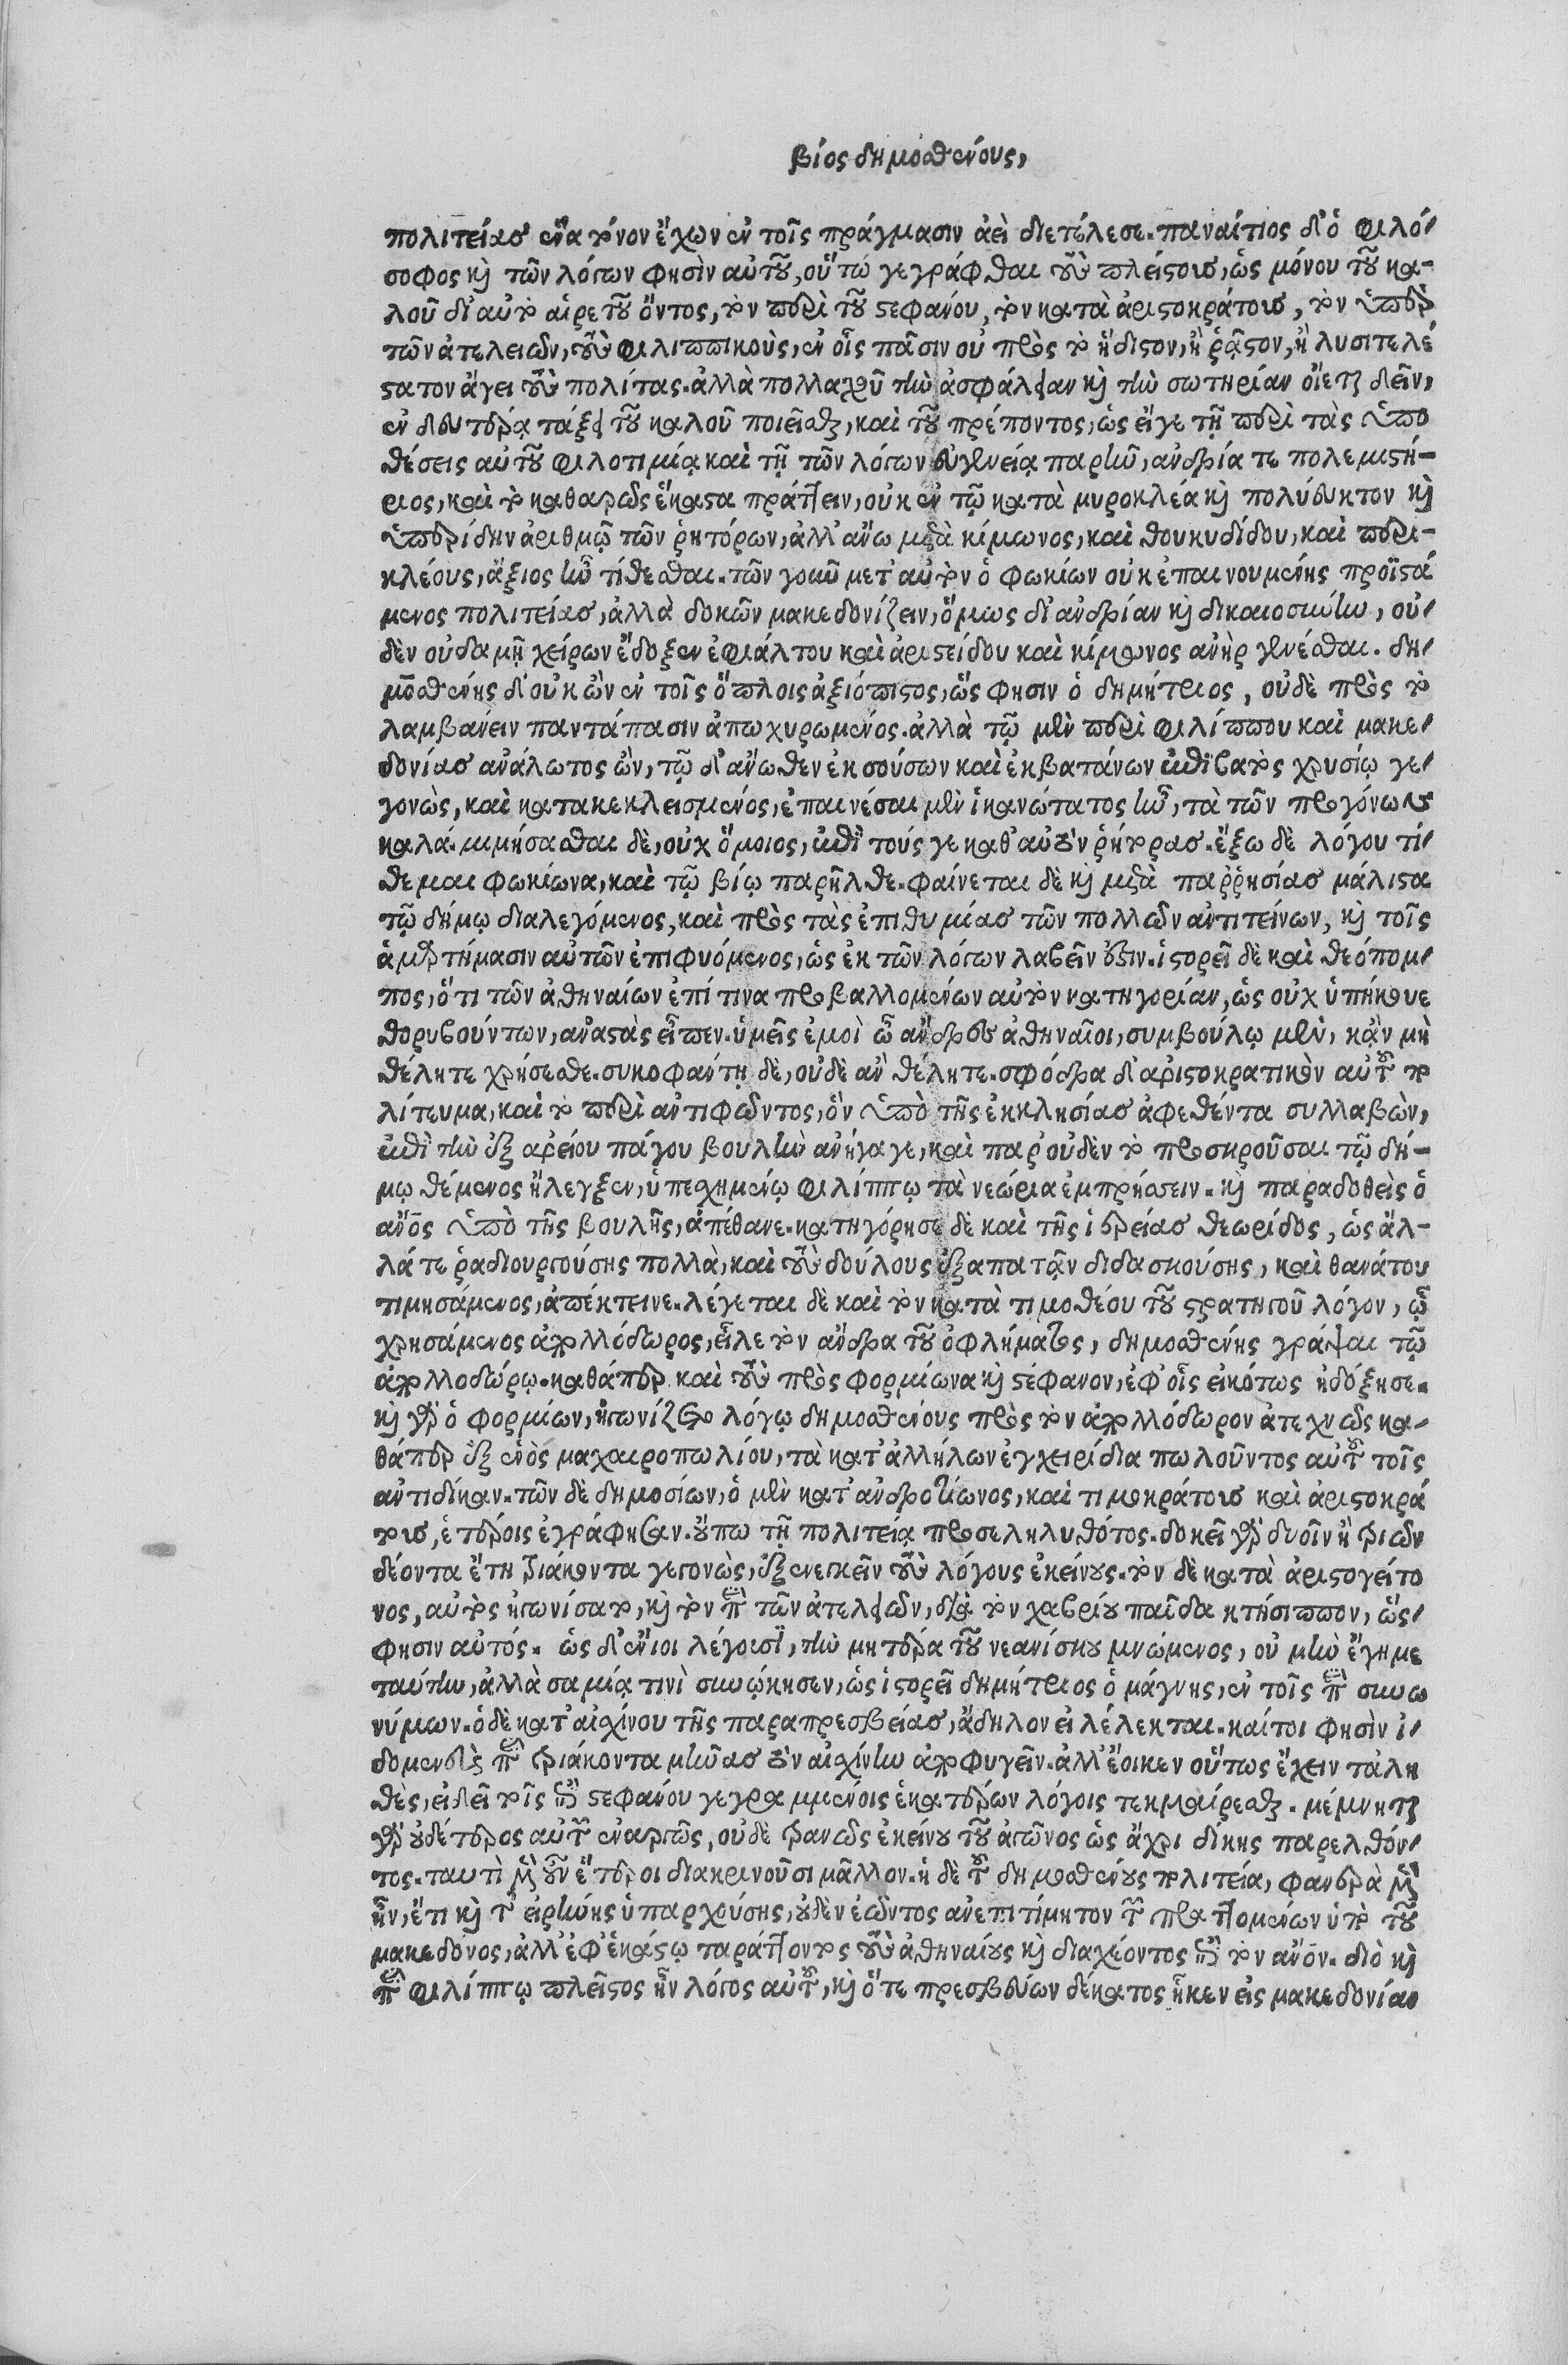 βίος δημοσθένους,
πολιτείας ἕνα τόνον ἔχων ἐν τοῖς πράγμασιν ἀεὶ διετέλεσε. παναίτιος δ' ὁ φιλό-
σοφος καὶ τῶν λόγων φησὶν αὐτοῦ, οὕτω γεγράφθαι τοὺς πλείστους, ὡς μόνου τοῦ κα-
λοῦ δι' αὐτὸ αἱρετοῦ ὄντος, τὸν περὶ τοῦ στεφάνου, τὸν κατὰ ἀριστοκράτους, τὸν ὑπὲρ
τῶν ἀτελειῶν, τοὺς φιλιππικοὺς, ἐν οἷς πᾶσιν οὐ πρὸς τὸ ἥδιστον, ἢ ῥᾷστον, ἢ λυσιτελέ
στατον ἄγει τοὺς πολίτας. ἀλλὰ πολλαχοῦ τὴν ἀσφάλειαν καὶ τὴν σωτηρίαν οἴεται δεῖν,
ἐν δευτέρᾳ τάξει τοῦ καλοῦ ποιεῖσθαι, καὶ τοῦ πρέποντος, ὡς εἴγε τῇ περὶ τὰς ὑπο
θέσεις αὐτοῦ φιλοτιμίᾳ καὶ τῇ τῶν λόγων εὐγενείᾳ παρῆν, ἀνδρία τε πολεμιστή-
ριος, καὶ τὸ καθαρῶς ἕκαστα πράττειν, οὐκ ἐν τῷ κατὰ μυροκλέα καὶ πολύευκτον καὶ
ὑπερίδην ἀριθμῷ τῶν ῥητόρων, ἀλλ' ἄνω μετὰ κίμωνος, καὶ θουκυδίδου, καὶ περι-
κλέους, ἄξιος ἦν τίθεσθαι. τῶν γοῦν μετ' αὐτὸν ὁ φωκίων οὐκ ἐπαινουμένης προϊστά
μενος πολιτείας, ἀλλὰ δοκῶν μακεδονίζειν, ὅμως δι' ἀνδρίαν καὶ δικαιοσύνην, οὐ-
δὲν οὐδαμῇ χείρων ἔδοξεν ἐφιάλτου καὶ ἀριστείδου καὶ κίμωνος ἀνὴρ γενέσθαι. δη-
μοσθένης δ' οὐκ ὢν ἐν τοῖς ὅπλοις ἀξιόπιστος, ὥς φησιν ὁ δημήτριος, οὐδὲ πρὸς τὸ
λαμβάνειν παντάπασιν ἀπωχυρωμένος. ἀλλὰ τῷ μὲν περὶ φιλίππου καὶ μακε-
δονίας ἀνάλωτος ὢν, τῷ δ' ἄνωθεν ἐκ σούσων καὶ ἐκβατάνων ἐπίβατος χρυσίῳ γε-
γονὼς, καὶ κατακεκλεισμένος, ἐπαινέσαι μὲν ἱκανώτατος ἦν, τὰ τῶν προγόνων
καλά. μιμήσασθαι δὲ, οὐχ ὅμοιος, ἐπεὶ τούς γε καθ' αὑτὸν ῥήτορας. ἔξω δὲ λόγου τί-
θεμαι φωκίωνα, καὶ τῷ βίῳ παρῆλθε. φαίνεται δὲ καὶ μετὰ παῤῥησίας μάλιστα
τῷ δήμῳ διαλεγόμενος, καὶ πρὸς τὰς ἐπιθυμίας τῶν πολλῶν ἀντιτείνων, καὶ τοῖς
ἁμαρτήμασιν αὐτῶν ἐπιφυόμενος, ὡς ἐκ τῶν λόγων λαβεῖν ἔστιν. ἱστορεῖ δὲ καὶ θεόπομ-
πος, ὅτι τῶν ἀθηναίων ἐπί τινα προβαλλομένων αὐτὸν κατηγορίαν, ὡς οὐχ ὑπήκουε
θορυβούντων, ἀναστὰς εἶπεν. ὑμεῖς ἐμοὶ ὦ ἄνδρες ἀθηναῖοι, συμβούλῳ μὲν, κἂν μὴ
θέλητε χρήσεσθε. συκοφάντῃ δὲ, οὐδὲ ἂν θέλητε. σφόδρα δ' ἀριστοκρατικὸν αὐτοῦ πο
λίτευμα, καὶ τὸ περὶ ἀντιφῶντος, ὃν ὑπὸ τῆς ἐκκλησίας ἀφεθέντα συλλαβὼν,
ἐπὶ τὴν ἐξ ἀρείου πάγου βουλὴν ἀνήγαγε, καὶ παρ' οὐδὲν τὸ προσκροῦσαι τῷ δή-
μῳ θέμενος ἤλεγξεν, ὑπεσχημένῳ φιλίππῳ τὰ νεώρια ἐμπρήσειν. καὶ παραδοθεὶς ὁ
ἄνος ὑπὸ τῆς βουλῆς, ἀπέθανε. κατηγόρησε δὲ καὶ τῆς ἱερείας θεωρίδος, ὡς ἄλ-
λά τε ῥαδιουργούσης πολλὰ, καὶ τοὺς δούλους ἐξαπατᾷν διδασκούσης, καὶ θανάτου
τιμησάμενος, ἀπέκτεινε. λέγεται δὲ καὶ τὸν κατὰ τιμοθέου τοῦ στρατηγοῦ λόγον, ᾧ
χρησάμενος ἀπολλόδωρος, εἷλε τὸν ἄνδρα τοῦ ὀφλήματος, δημοσθένης γράψαι τῷ
ἀπολλοδώρῳ. καθάπερ καὶ τοὺς πρὸς φορμίωνα καὶ στέφανον, ἐφ' οἷς εἰκότως ἠδόξησε.
καὶ γὰρ ὁ φορμίων, ἠγωνίζετο λόγῳ δημοσθένους πρὸς τὸν ἀπολλόδωρον ἀτεχνῶς κα-
θάπερ ἐξ ἑνὸς μαχαιροπωλίου, τὰ κατ' ἀλλήλων ἐγχειρίδια πωλοῦντος αὐτοῦ τοῖς
ἀντιδίκοις. τῶν δὲ δημοσίων, ὁ μὲν κατ' ἀνδροτίωνος, καὶ τιμοκράτους καὶ ἀριστοκρά
τους, ἑτέροις ἐγράφησαν. οὔπω τῇ πολιτείᾳ προσεληλυθότος. δοκεῖ γὰρ δυοῖν ἢ τριῶν
δέοντα ἔτη τριάκοντα γεγονὼς, ἐξενεγκεῖν τοὺς λόγους ἐκείνους. τὸν δὲ κατὰ ἀριστογείτο
νος, αὐτὸς ἠγωνίσατο, καὶ τὸν περὶ τῶν ἀτελειῶν, διὰ τὸν χαβρίου παῖδα κτήσιππον, ὥς
φησιν αὐτός. ὡς δ' ἔνιοι λέγουσι, τὴν μητέρα τοῦ νεανίσκου μνώμενος, οὐ μὴν ἔγημε
ταύτην, ἀλλὰ σαμίᾳ τινὶ συνῴκησεν, ὡς ἱστορεῖ δημήτριος ὁ μάγνης, ἐν τοῖς περὶ συνω
νύμων. ὁ δὲ κατ' αἰσχίνου τῆς παραπρεσβείας, ἄδηλον εἰ λέλεκται. καίτοι φησὶν ἰ-
δομενεὺς παρὰ τριάκοντα μόνας τὸν αἰσχίνην ἀποφυγεῖν. ἀλλ' ἔοικεν οὕτως ἔχειν τἀλη
θὲς, εἰ δεῖ τοῖς περὶ στεφάνου γεγραμμένοις ἑκατέρων λόγοις τεκμαίρεσθαι. μέμνηται
γὰρ οὐδέτερος αὐτῶν ἐναργῶς, οὐδὲ τρανῶς ἐκείνου τοῦ ἀγῶνος ὡς ἄχρι δίκης παρελθόν-
τος. ταυτὶ μὲν οὖν ἕτεροι διακρινοῦσι μᾶλλον. ἡ δὲ τοῦ δημοσθένους πολιτεία, φανερὰ μὲν
ἦν, ἔτι καὶ τῆς εἰρήνης ὑπαρχούσης, οὐδὲν ἐῶντος ἀνεπιτίμητον τῶν πραττομένων ὑπὸ τοῦ
μακεδόνος, ἀλλ' ἐφ' ἑκάστῳ ταράττοντος τοὺς ἀθηναίους καὶ διακαίοντος ἐπὶ τὸν ἄνον. διὸ καὶ
παρὰ φιλίππῳ πλεῖστος ἦν λόγος αὐτοῦ, καὶ ὅτε πρεσβεύων δέκατος ἧκεν εἰς μακεδονίαν